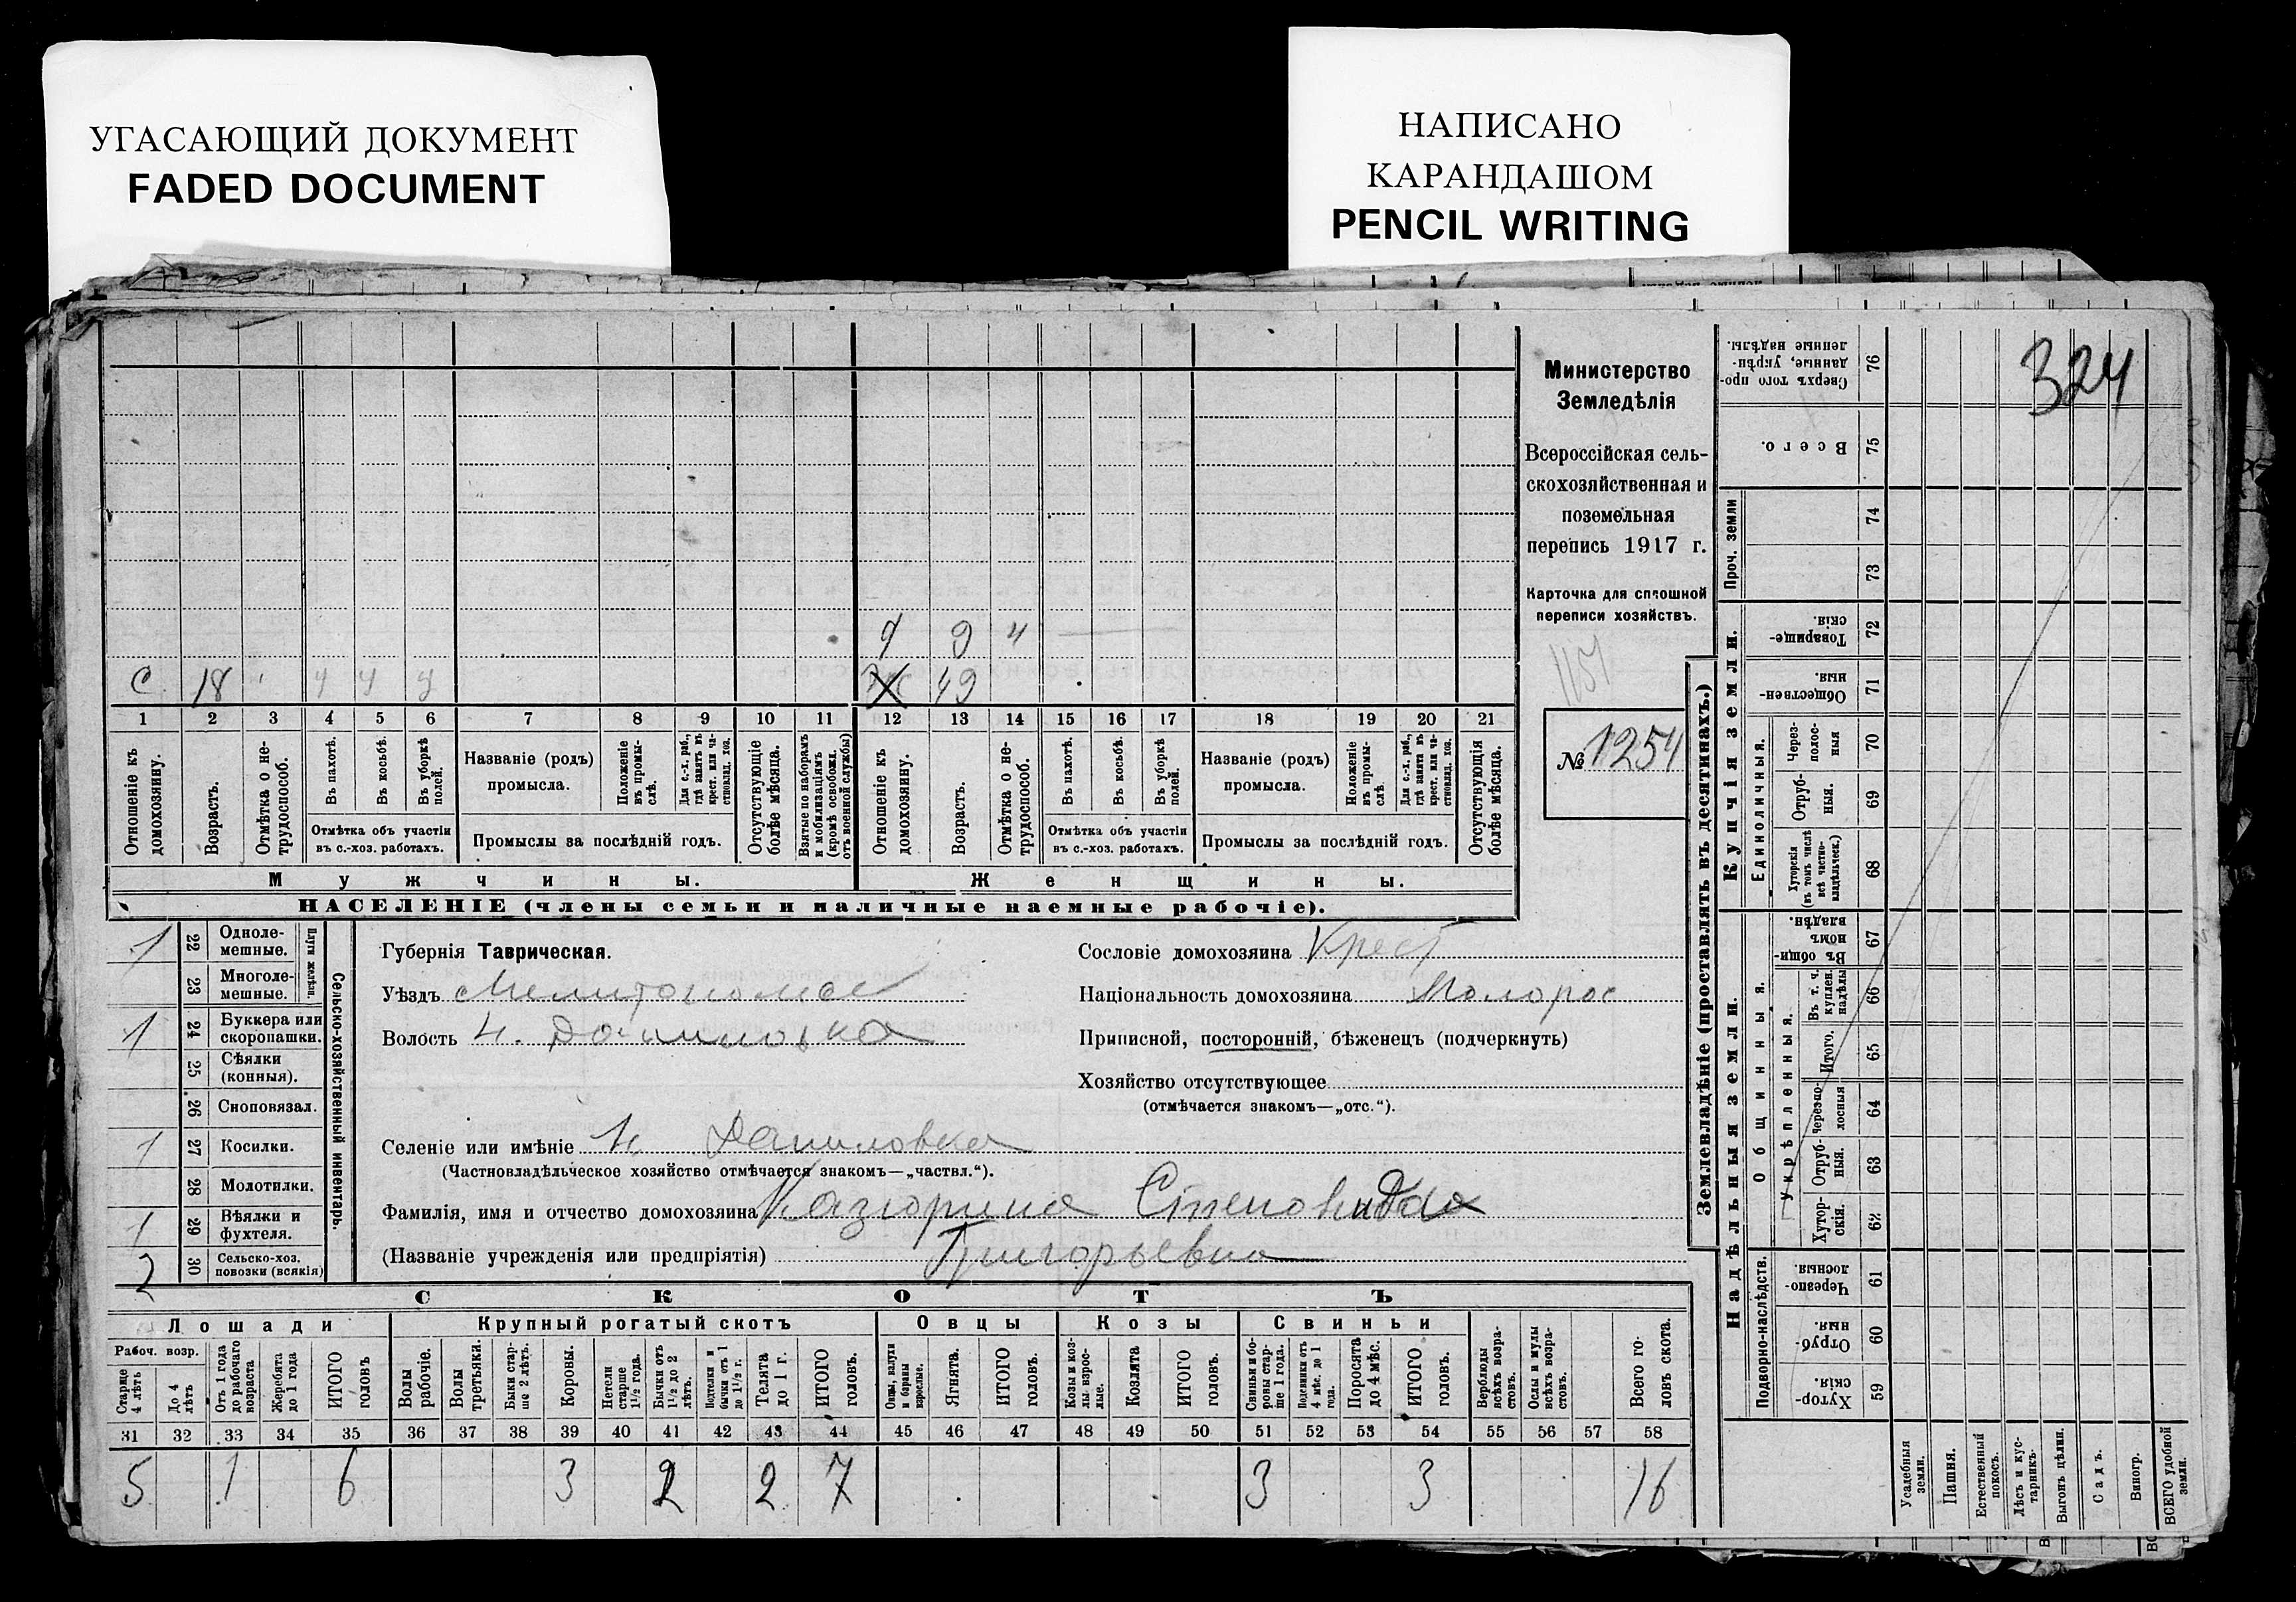 УГАСАЮЩИЙ ДОКУМЕНТ
FADED DOCUMENT
НАПИСАНО
КАРАНДАШОМ
PENCIL WRITING
324
Министерство
Земледѣлія
Всероссійская сель-
скохозяйственная и
поземельная
перепись 1917 г.
Карточка для сплошной
переписи хозяйствъ.
1151
№ 1254
9 4
С 18 49
1 2 3 4 5 6 7 8 9 10 11 12 13 14 15 16 17 18 19 20 21
Отношеніе къ домохозяину.
Возрастъ.
Отмѣтка о не-трудоспособ.
Въ пахотѣ.
Въ косьбѣ.
Въ уборкѣ полей.
Отмѣтка объ участіи
въ с.-хоз. работахъ.
Названіе (родъ)
промысла.
Положеніе въ промы-слѣ.
Для с.-х. раб., гдѣ занятъ въ крест. или ча-стновлад. хоз.
Промыслы за послѣдній годъ.
Отсутствующіе болѣе мѣсяца.
Взятые по наборамъ и мобилизаціямъ (кромѣ освобожд. отъ военной службы)
Отношеніе къ домохозяину.
Возрастъ.
Отмѣтка о не-трудоспособ.
Въ пахотѣ.
Въ косьбѣ.
Въ уборкѣ полей.
Отмѣтка объ участіи
въ с.-хоз. работахъ.
Названіе (родъ)
промысла.
Положеніе въ промы-слѣ.
Для с.-х. раб., гдѣ занята въ крест. или ча-стновлад. хоз.
Промыслы за послѣдній годъ.
Отсутствующія болѣе мѣсяца.
Мужчины.
Женщины.
НАСЕЛЕНІЕ (члены семьи и наличные наемные рабочіе).
1 22 Одноле-мешные.
23 Многоле-мешные.
Плуги желѣзн.
1 24 Буккера или скоропашки.
25 Сѣялки (конныя).
26 Сноповязал.
1 27 Косилки.
28 Молотилки.
1 29 Вѣялки и фухтеля.
2 30 Сельско-хоз. повозки (всякія)
Сельско-хозяйственный инвентарь.
Губернія Таврическая.
Уѣздъ
Волость Н. Даниловка
Селеніе или имѣніе Н. Даниловка
(Частновладѣльческое хозяйство отмѣчается знакомъ—„частвл.“).
Фамилія, имя и отчество домохозяина Казюрина Степанида
(Названіе учрежденія или предпріятія) Григорьевна
Сословіе домохозяина Крест
Національность домохозяина Малорос
Приписной, посторонній, бѣженецъ (подчеркнуть)
Хозяйство отсутствующее
(отмѣчается знакомъ—„отс.“).
СКОТЪ
Лошади
Крупный рогатый скотъ
Овцы
Козы
Свиньи
Рабоч. возр.
Старше 4 лѣтъ
До 4 лѣтъ
Отъ 1 года до рабочаго возраста
Жеребята до 1 года
ИТОГО головъ
Волы рабочіе.
Волы третьяки.
Быки стар-ше 2 лѣтъ.
Коровы.
Нетели старше 1½ года.
Бычки отъ 1½ до 2 лѣтъ.
Подтелки и бычки отъ 1 до 1½ г.
Телята до 1 г.
ИТОГО головъ.
Овцы, валухи и бараны взрослые.
Ягнята.
ИТОГО головъ.
Козы и коз-лы взрос-лые.
Козлята
ИТОГО головъ.
Свиньи и бо-ровы стар-ше 1 года.
Подсвинки отъ 4 мѣс. до 1 года.
Поросята до 4 мѣс.
ИТОГО головъ.
Верблюды всѣхъ возра-стовъ.
Ослы и мулы всѣхъ возра-стовъ.
Всего го-ловъ скота.
31 32 33 34 35 36 37 38 39 40 41 42 43 44 45 46 47 48 49 50 51 52 53 54 55 56 57 58
5 1 6 3 2 2 7 3 3 16
Землевладѣніе (проставлять въ десятинахъ.)
Надѣльныя земли.
Купчія земли.
Проч. земли
Сверхъ того про-данные, укрѣп-ленные надѣлы. 76
Всего. 75
74
73
Товарище-скія. 72
Обществен-ныя. 71
Единоличныя.
Через-полос-ныя 70
Отруб-ныя. 69
Хуторскія (въ томъ числѣ всѣ частно-владѣльческ.) 68
Общинныя.
Въ общи-номъ владѣн. 67
Укрѣпленныя.
Въ т. ч. куплен. надѣлы 66
Итого. 65
Черезпо-лосныя 64
Отруб-ныя. 63
Хутор-скія. 62
Подворно-наслѣдств.
Черезпо-лосныя. 61
Отруб-ныя. 60
Хутор-скія. 59
Усадебныя земли.
Пашня.
Естественный покосъ.
Лѣсъ и кус-тарникъ.
Выгонъ цѣлин.
Садъ.
Виногр.
ВСЕГО удобной земли.